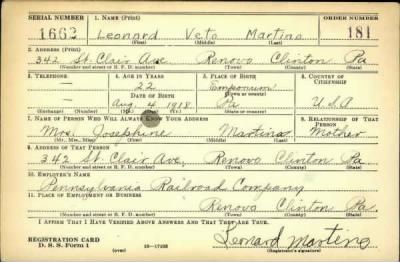 SERIAL NUMBER 1. NAME (Print) ORDER NUMBER
1662 Leonard Veto Martino 181
(First) (Middle) (Last)
2. ADDRESS (Print)
342 St. Clair Ave. Renovo Clinton Pa
(Number and street or R. F. D. number) (Town) (County) (State)
3. TELEPHONE 4. AGE IN YEARS 5. PLACE OF BIRTH 6. COUNTRY OF CITIZENSHIP
— 22 Emporium
DATE OF BIRTH (Town or county)
— Aug. 4 1918 Pa U.S.A
(Exchange) (Number) (Mo.) (Day) (Yr.) (State or country)
7. NAME OF PERSON WHO WILL ALWAYS KNOW YOUR ADDRESS 8. RELATIONSHIP OF THAT PERSON
Mrs. Josephine Martino Mother
(Mr., Mrs., Miss) (First) (Middle) (Last)
9. ADDRESS OF THAT PERSON
342 St. Clair Ave, Renovo Clinton Pa.
(Number and street or R. F. D. number) (Town) (County) (State)
10. EMPLOYER'S NAME
Pennsylvania Railroad Company
11. PLACE OF EMPLOYMENT OR BUSINESS
Renovo Clinton Pa.
(Number and street or R. F. D. number) (Town) (County) (State)
I AFFIRM THAT I HAVE VERIFIED ABOVE ANSWERS AND THAT THEY ARE TRUE.
REGISTRATION CARD Leonard Martino
D. S. S. Form 1 (over) 16—17105 (Registrant's signature)